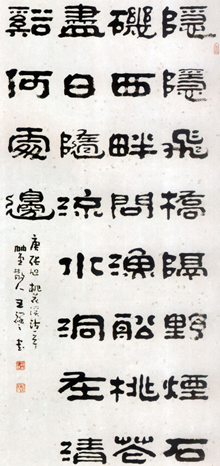 隱隱飛橋隔野煙石
磯西畔問漁船桃花
盡日隨流水洞在清
谿何處邊
唐張旭桃花谿詩一首
散人王書